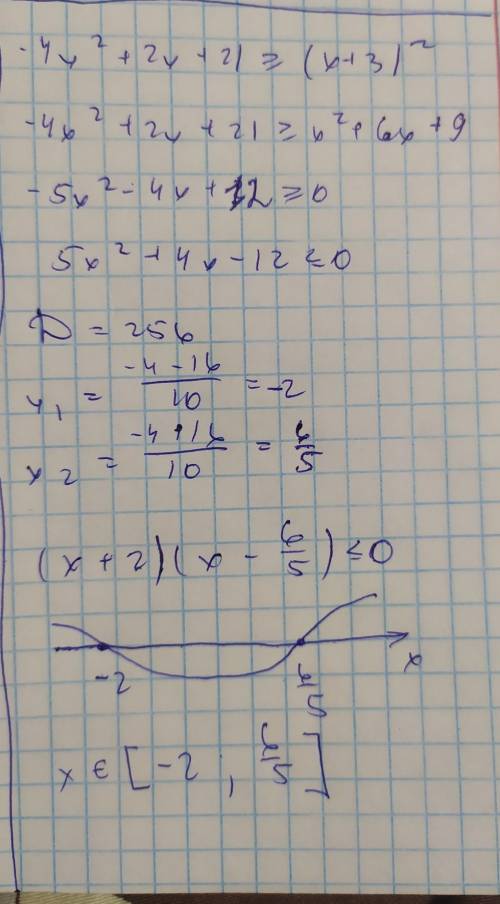 -4x² + 2x + 21 ≥ (x+3)²
-4x² + 2x + 21 ≥ x² + 6x + 9
-5x² - 4x + 12 ≥ 0
5x² + 4x - 12 ≤ 0
D = 256
x₁ = (-4 - 16)/10 = -2
x₂ = (-4 + 16)/10 = 6/5
(x + 2)(x - 6/5) ≤ 0
-2 6/5 x
x ∈ [-2 ; 6/5]